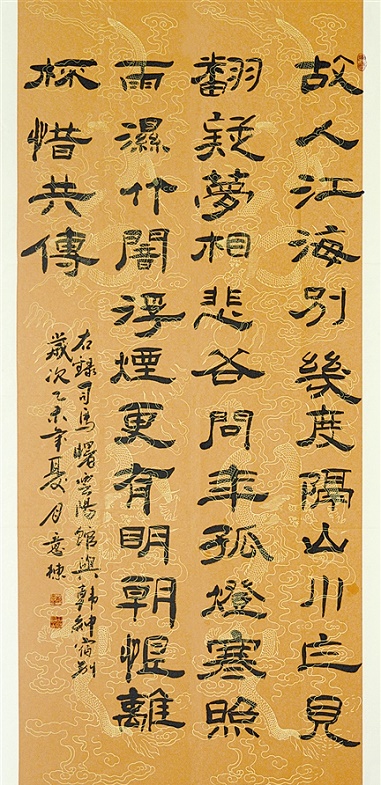 故人江海別幾度隔山川乍見
翻疑夢相悲各問年孤燈寒照
雨濕竹闇浮煙更有明朝恨離
杯惜共傳
右錄司馬曙雲陽館與韓紳宿別
歲次乙未年夏月